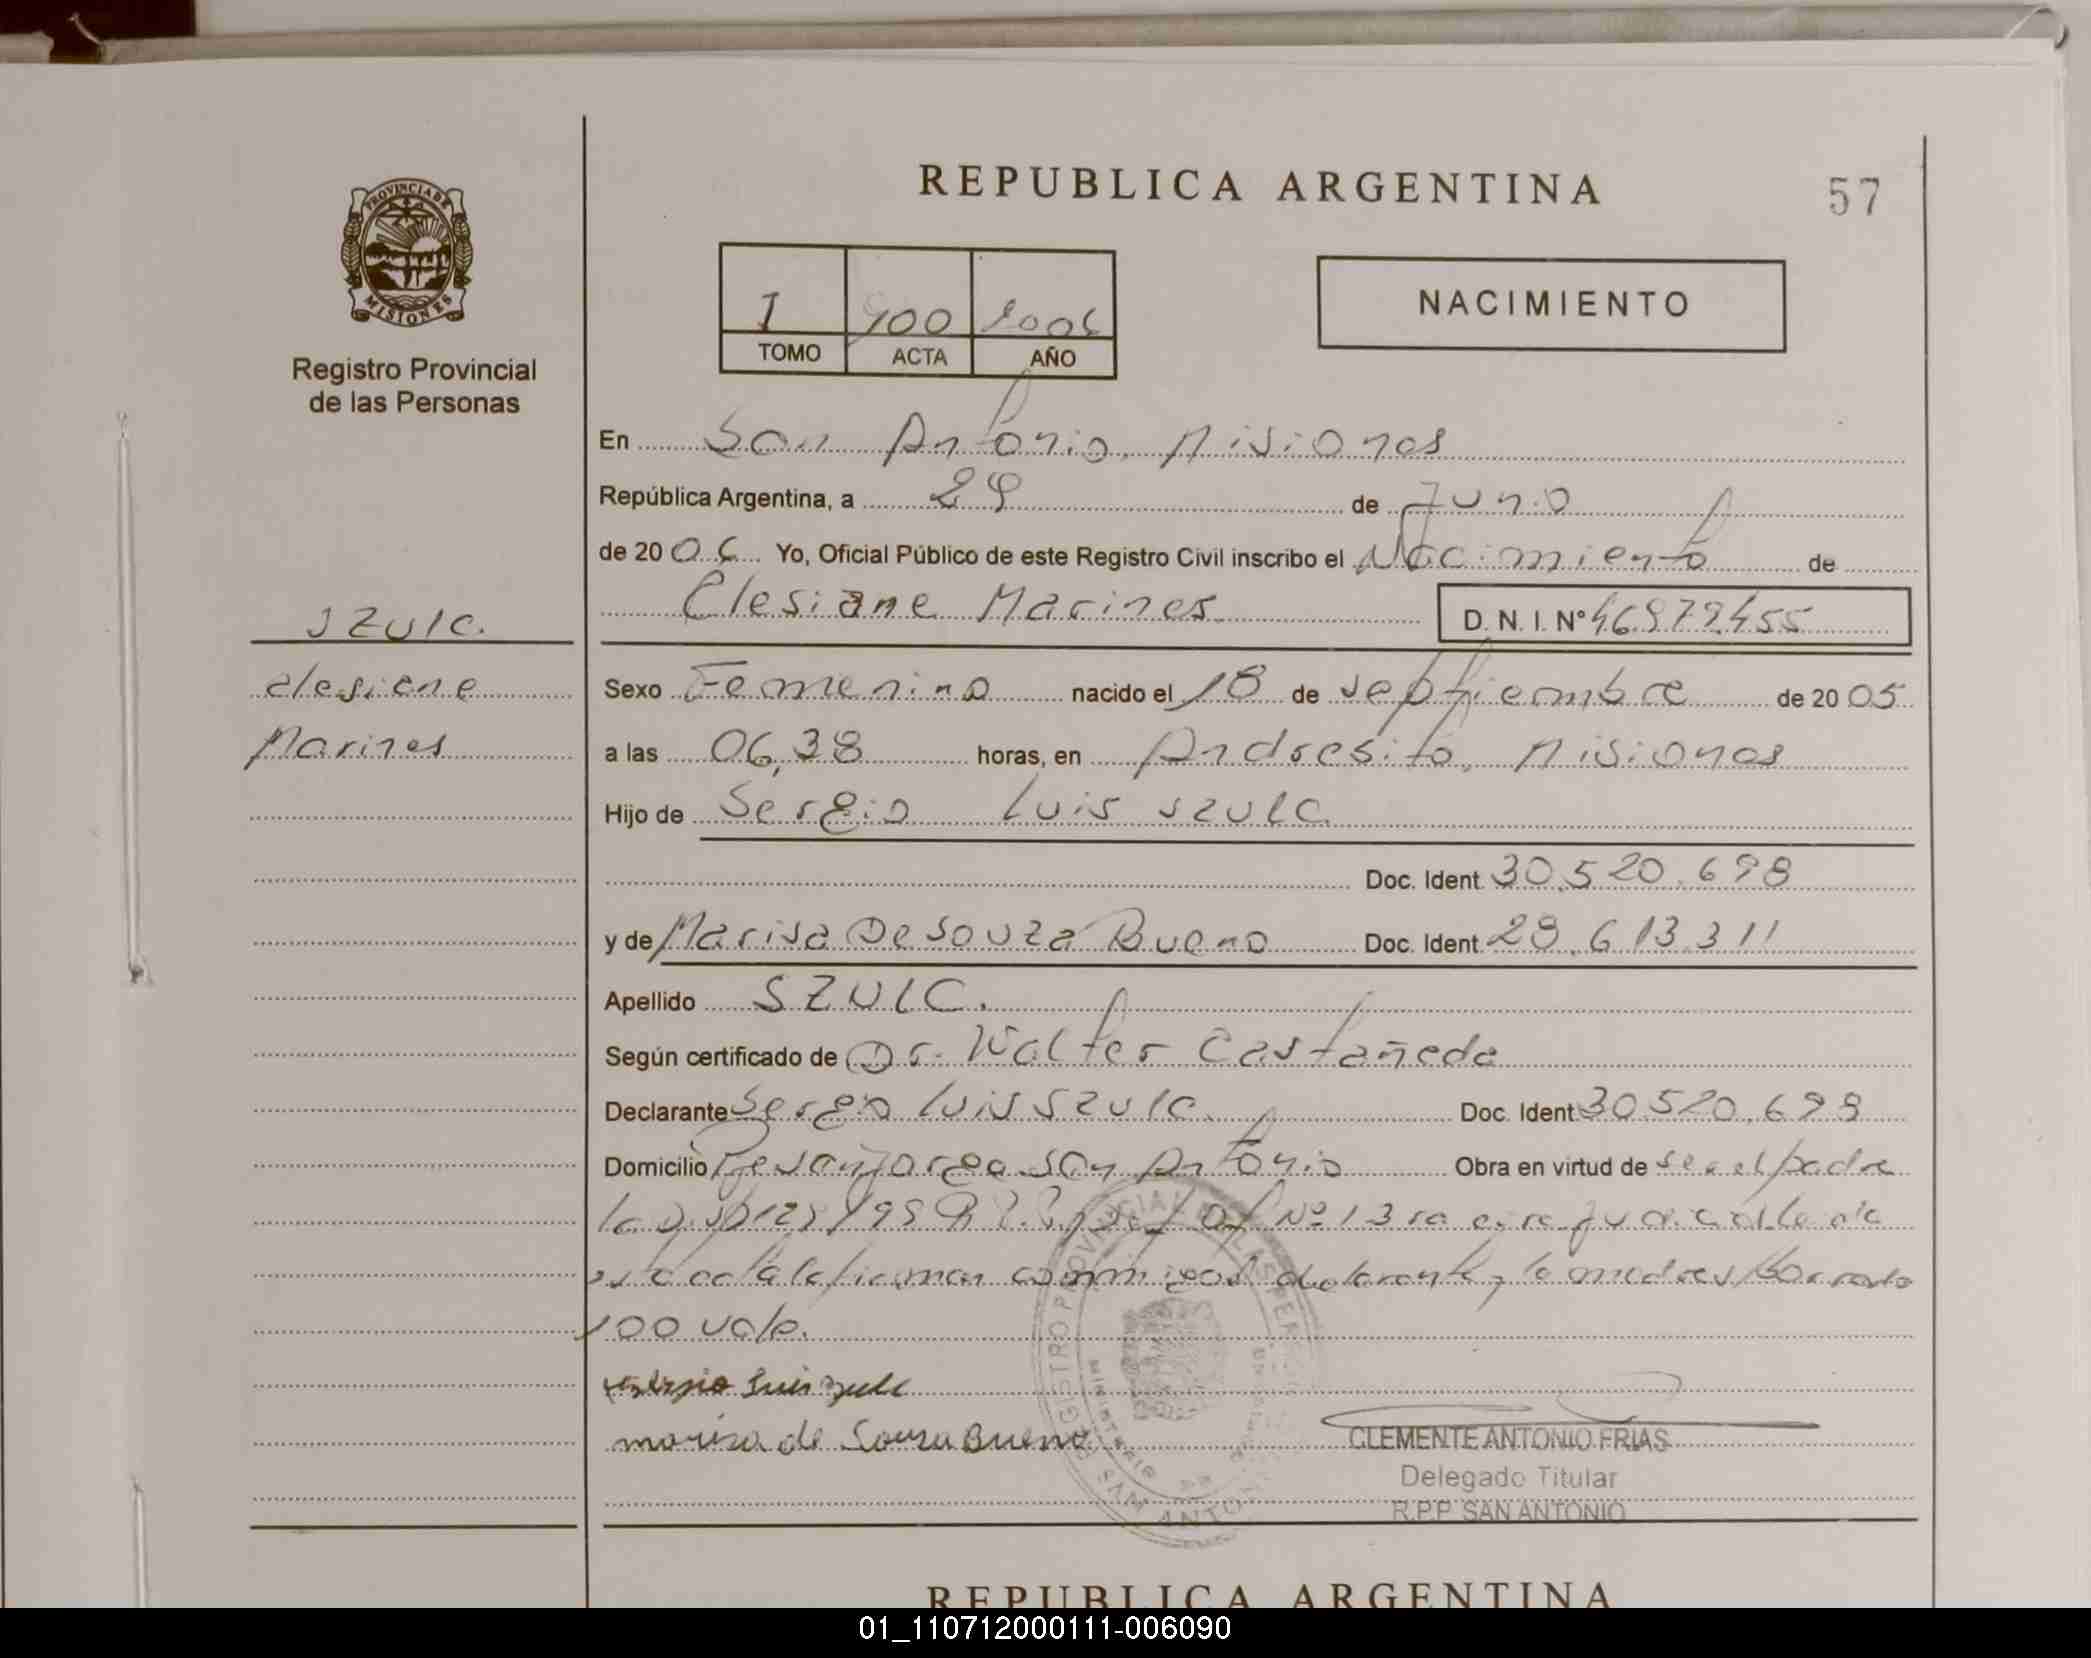 PROVINCIA DE
MISIONES
Registro Provincial
de las Personas
SZULC.
elesiane
Marines
REPUBLICA ARGENTINA
57
I 100 2006
TOMO ACTA AÑO
NACIMIENTO
En San Antonio, Misiones
República Argentina, a 29 de Junio
de 2006 Yo, Oficial Público de este Registro Civil inscribo el Nacimiento de
Elesiane Marines D. N. I. Nº 46979455
Sexo Femenino nacido el 18 de septiembre de 2005
a las 06,38 horas, en Andresito, Misiones
Hijo de Sergio Luis SZULC
Doc. Ident. 30.520.698
y de Marisa De Souza Bueno Doc. Ident. 28.613311
Apellido SZULC.
Según certificado de Dr. Walter Castañeda
Declarante Sergio Luis SZULC. Doc. Ident. 30520.698
Domicilio San Antonio Obra en virtud de ser el padre
Nº 13
declarante y la madre
100 vale.
Luis
marisa de Souza Bueno
CLEMENTE ANTONIO FRIAS
Delegado Titular
R.P.P. SAN ANTONIO
REPUBLICA ARGENTINA
01_110712000111-006090